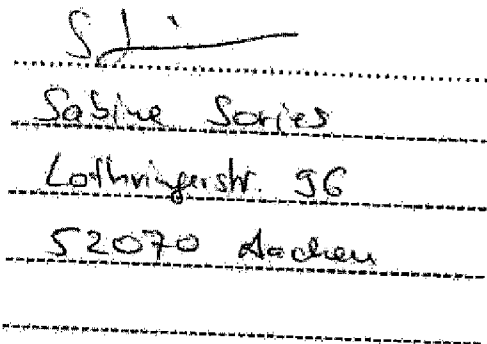 Sabine Sories
Lothringerstr. 96
52070 Aachen